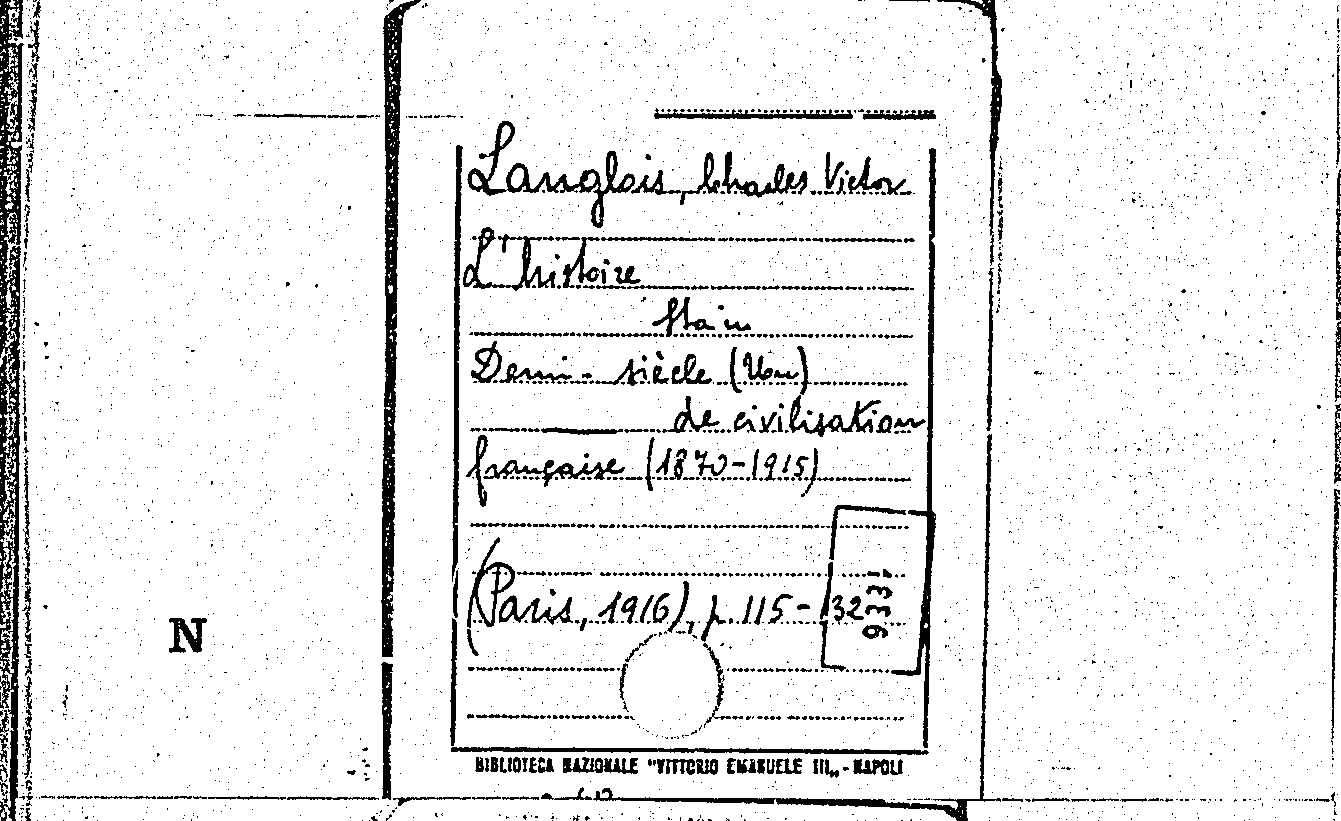 Langlois, Charles Victor
L'histoire
Sta in
Demi-siècle (Un)
de civilisation
française (1870-1915)
(Paris, 1916), p. 115-132
9331
N
BIBLIOTECA NAZIONALE "VITTORIO EMANUELE III„ - NAPOLI